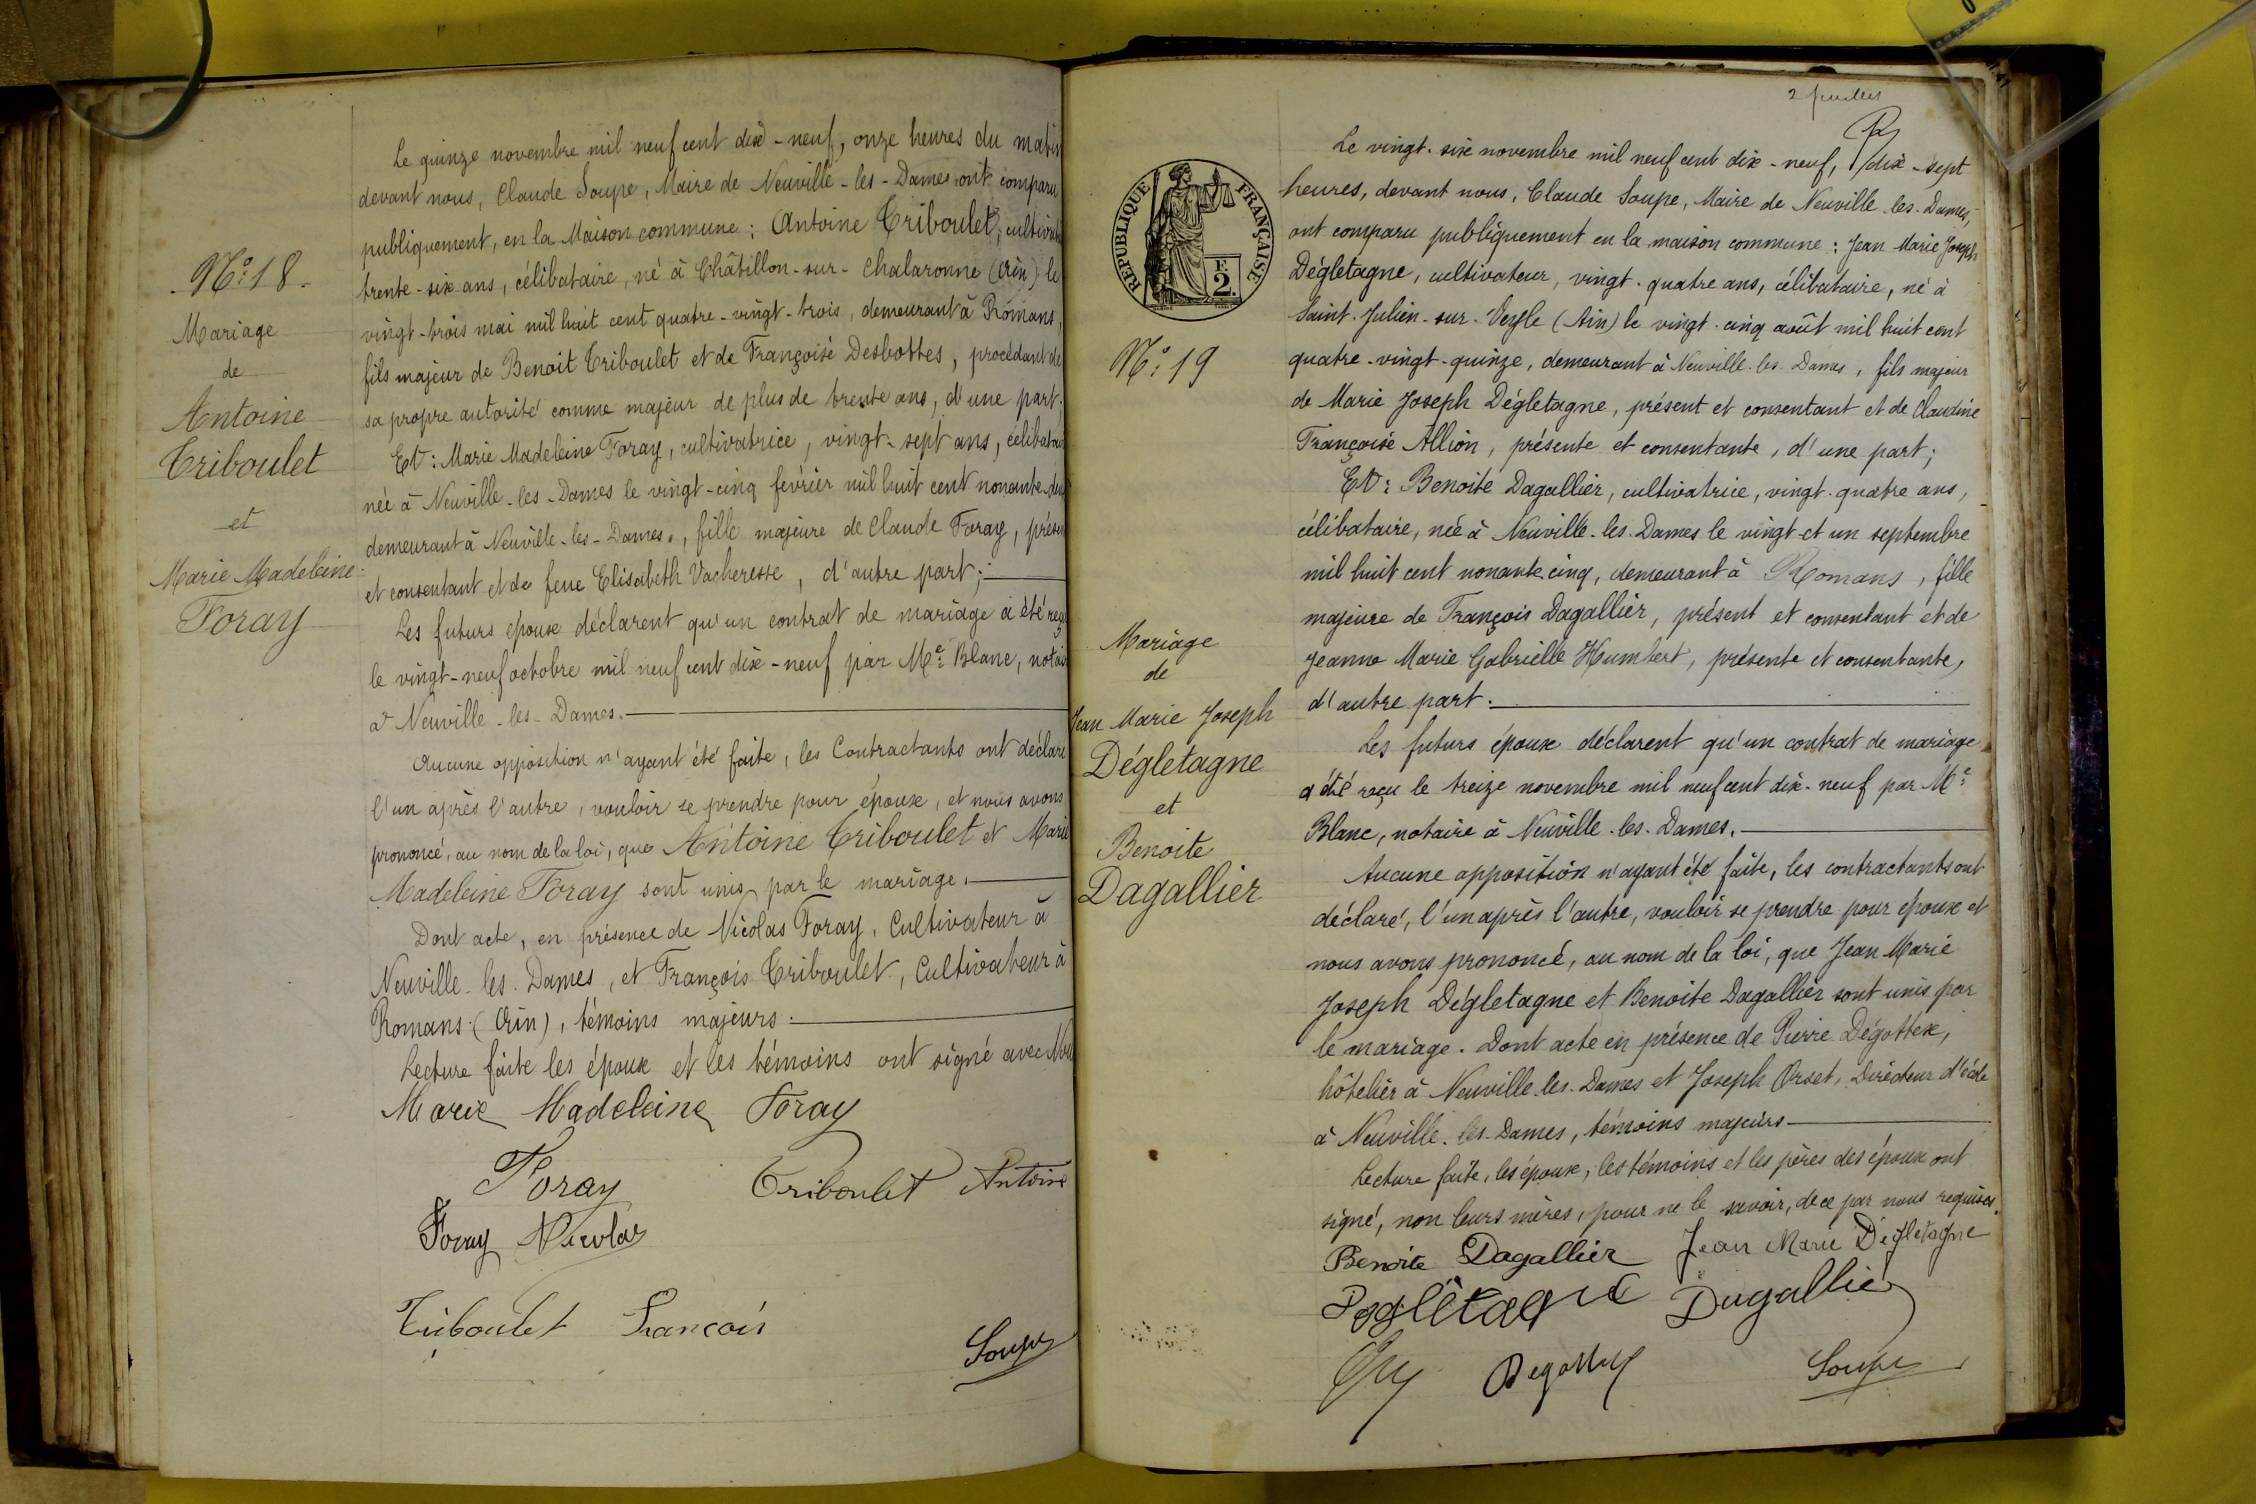 N°: 18.
Mariage
de
Antoine
Triboulet
et
Marie Madeleine
Foray
Le quinze novembre mil neuf cent dix-neuf, onze heures du matin
devant nous, Claude Soupe, Maire de Neuville-les-Dames ont comparu
publiquement, en la Maison commune : Antoine Triboulet, cultivateur
trente-six ans, célibataire, né à Châtillon-sur-Chalaronne (Ain) le
vingt-trois mai mil huit cent quatre-vingt-trois, demeurant à Romans,
fils majeur de Benoit Triboulet et de Françoise Desbottes, procédant de
sa propre autorité comme majeur de plus de trente ans, d'une part.
Et : Marie Madeleine Foray, cultivatrice, vingt-sept ans, célibataire
née à Neuville-les-Dames le vingt-cinq février mil huit cent nonante-deux
demeurant à Neuville-les-Dames, fille majeure de Claude Foray, présent
et consentant et de feue Elisabeth Vacheresse, d'autre part;
Les futurs époux déclarent qu'un contrat de mariage a été reçu
le vingt-neuf octobre mil neuf cent dix-neuf par Me Blanc, notaire
à Neuville-les-Dames.
Aucune opposition n'ayant été faite, les Contractants ont déclaré
l'un après l'autre, vouloir se prendre pour époux, et nous avons
prononcé, au nom de la loi, que Antoine Triboulet et Marie
Madeleine Foray sont unis par le mariage.
Dont acte, en présence de Nicolas Foray, Cultivateur à
Neuville-les-Dames, et François Triboulet, Cultivateur à
Romans (Ain), témoins majeurs.
Lecture faite les époux et les témoins ont signé avec Nous
Marie Madeleine Foray
Foray Triboulet Antoine
Foray Nicolas
Triboulet François
Soupe
2 feuillets
REPUBLIQUE FRANÇAISE
F.
2.
N°: 19
Mariage
de
Jean Marie Joseph
Dégletagne
et
Benoite
Dagallier
Le vingt-six novembre mil neuf cent dix-neuf, dix-sept
heures, devant nous, Claude Soupe, Maire de Neuville-les-Dames,
ont comparu publiquement en la maison commune : Jean Marie Joseph
Dégletagne, cultivateur, vingt-quatre ans, célibataire, né à
Saint-Julien-sur-Veyle (Ain) le vingt-cinq août mil huit cent
quatre-vingt-quinze, demeurant à Neuville-les-Dames, fils majeur
de Marie Joseph Dégletagne, présent et consentant et de Claudine
Françoise Allion, présente et consentante, d'une part;
Et : Benoite Dagallier, cultivatrice, vingt-quatre ans,
célibataire, née à Neuville-les-Dames le vingt-et un septembre
mil huit cent nonante cinq, demeurant à Romans, fille
majeure de François Dagallier, présent et consentant et de
Jeanne Marie Gabrielle Humbert, présente et consentante,
d'autre part.
Les futurs époux déclarent qu'un contrat de mariage
a été reçu le treize novembre mil neuf cent dix-neuf par Me
Blanc, notaire à Neuville-les-Dames.
Aucune opposition n'ayant été faite, les contractants ont
déclaré, l'un après l'autre, vouloir se prendre pour époux et
nous avons prononcé, au nom de la loi, que Jean Marie
Joseph Dégletagne et Benoite Dagallier sont unis par
le mariage. Dont acte en présence de Pierre Dégottex,
hôtelier à Neuville-les-Dames et Joseph Orset, Directeur d'école
à Neuville-les-Dames, témoins majeurs
Lecture faite, les époux, les témoins et les pères des époux ont
signé, non leurs mères, pour ne le savoir, de ce par nous requises.
Benoite Dagallier Jean Marie Dégletagne
Degletagne Dagallier
Degottex Soupe